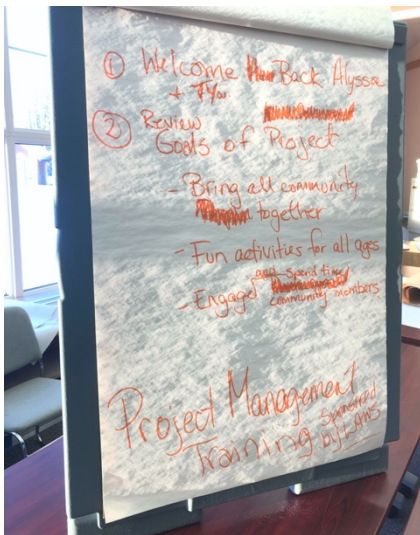 ① Welcome Back Alyssa
+ TYou
② Review
Goals of Project
- Bring all community
together
- Fun activities for all ages
and spend time
- Engage community members
Project Management
Training Sponsored
by